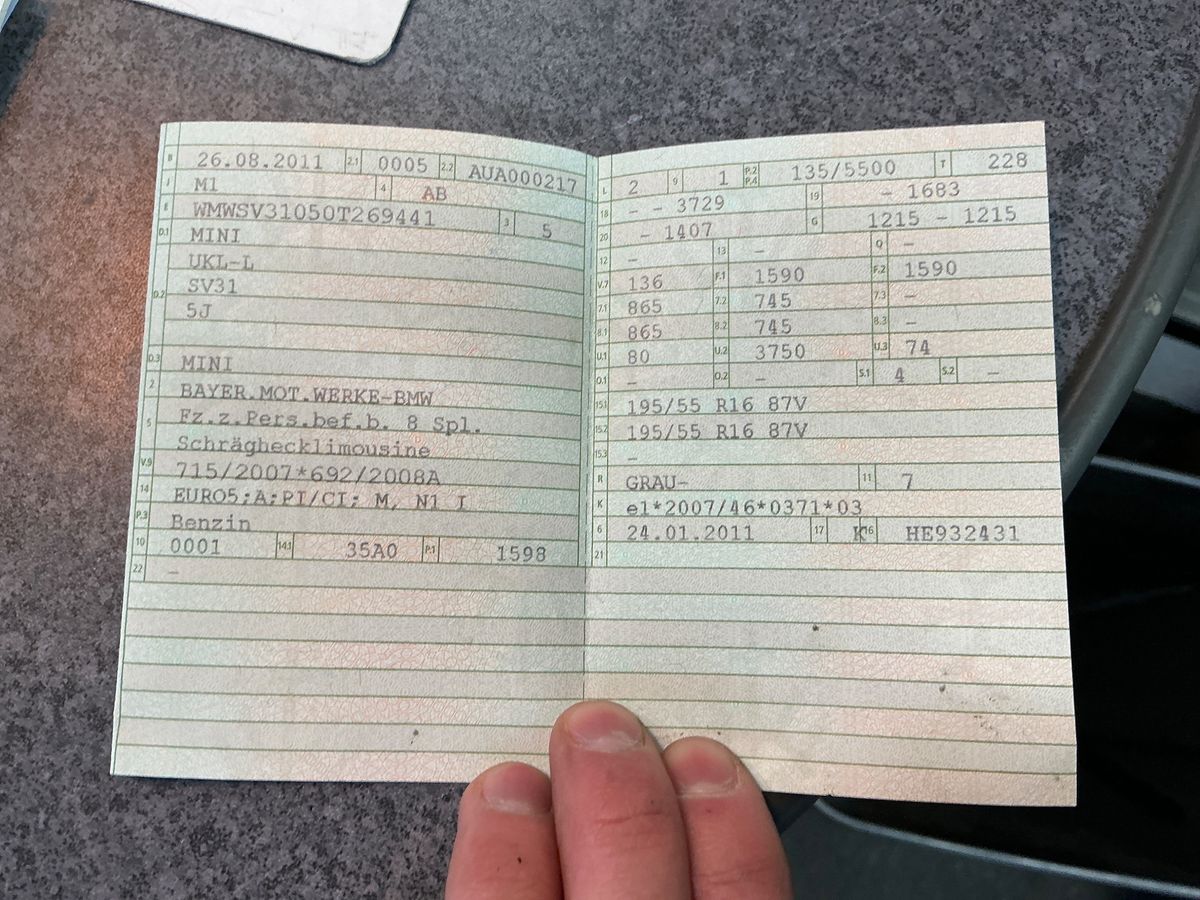 B 26.08.2011 2.1 0005 2.2 AUA000217
J M1 4 AB
E WMWSV31050T269441 3 5
D.1 MINI
UKL-L
D.2 SV31
5J
D.3 MINI
2 BAYER.MOT.WERKE-BMW
5 Fz.z.Pers.bef.b. 8 Spl.
Schräghecklimousine
V.9 715/2007*692/2008A
14 EURO5;A;PI/CI; M, N1 I
P.3 Benzin
10 0001 14.1 35A0 P.1 1598
22 –
L 2 9 1 P.2 P.4 135/5500 T 228
18 - - 3729 19 - 1683
20 - 1407 G 1215 - 1215
12 – 13 – Q –
V.7 136 F.1 1590 F.2 1590
7.1 865 7.2 745 7.3 –
8.1 865 8.2 745 8.3 –
U.1 80 U.2 3750 U.3 74
O.1 – O.2 – S.1 4 S.2 –
15.1 195/55 R16 87V
15.2 195/55 R16 87V
15.3 –
R GRAU- 11 7
K e1*2007/46*0371*03
6 24.01.2011 17 K 16 HE932431
21